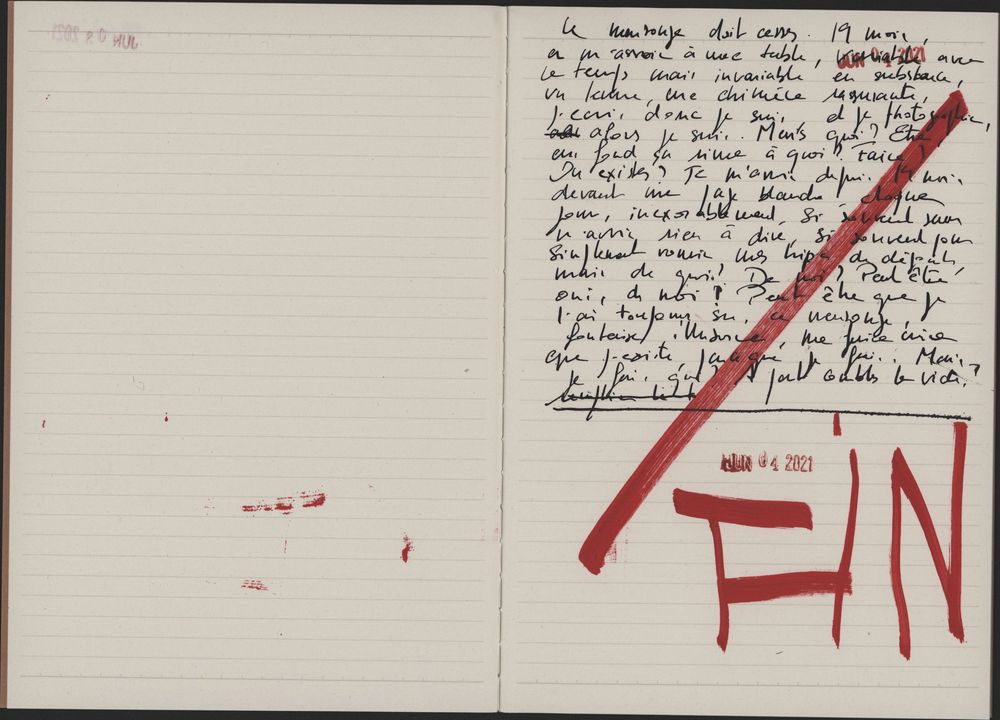 JUN 03 2021
Le mensonge doit cesser. 19 mois,
à m'asseoir à une table, variable avec
JUN 04 2021
le temps mais invariable en substance,
une chimère rassurante,
j'écris, donc je suis, et je photographie,
alors je suis. Mais quoi? Être
au fond ça rime à quoi? Faire?
Tu existes? Je m'assois depuis 19 mois
devant une page blanche chaque
jour, inexorablement, si souvent sans
n'avoir rien à dire, si souvent pour
simplement vomir mes tripes du départ,
mais de quoi? De moi? Peut être
oui, de moi! Peut être que je
l'ai toujours su, ce mensonge,
fantaisie, illusoire, me faire croire
que j'existe parce que je fais. Mais
je fais quoi? à part combler le vide?
JUN 04 2021
FIN